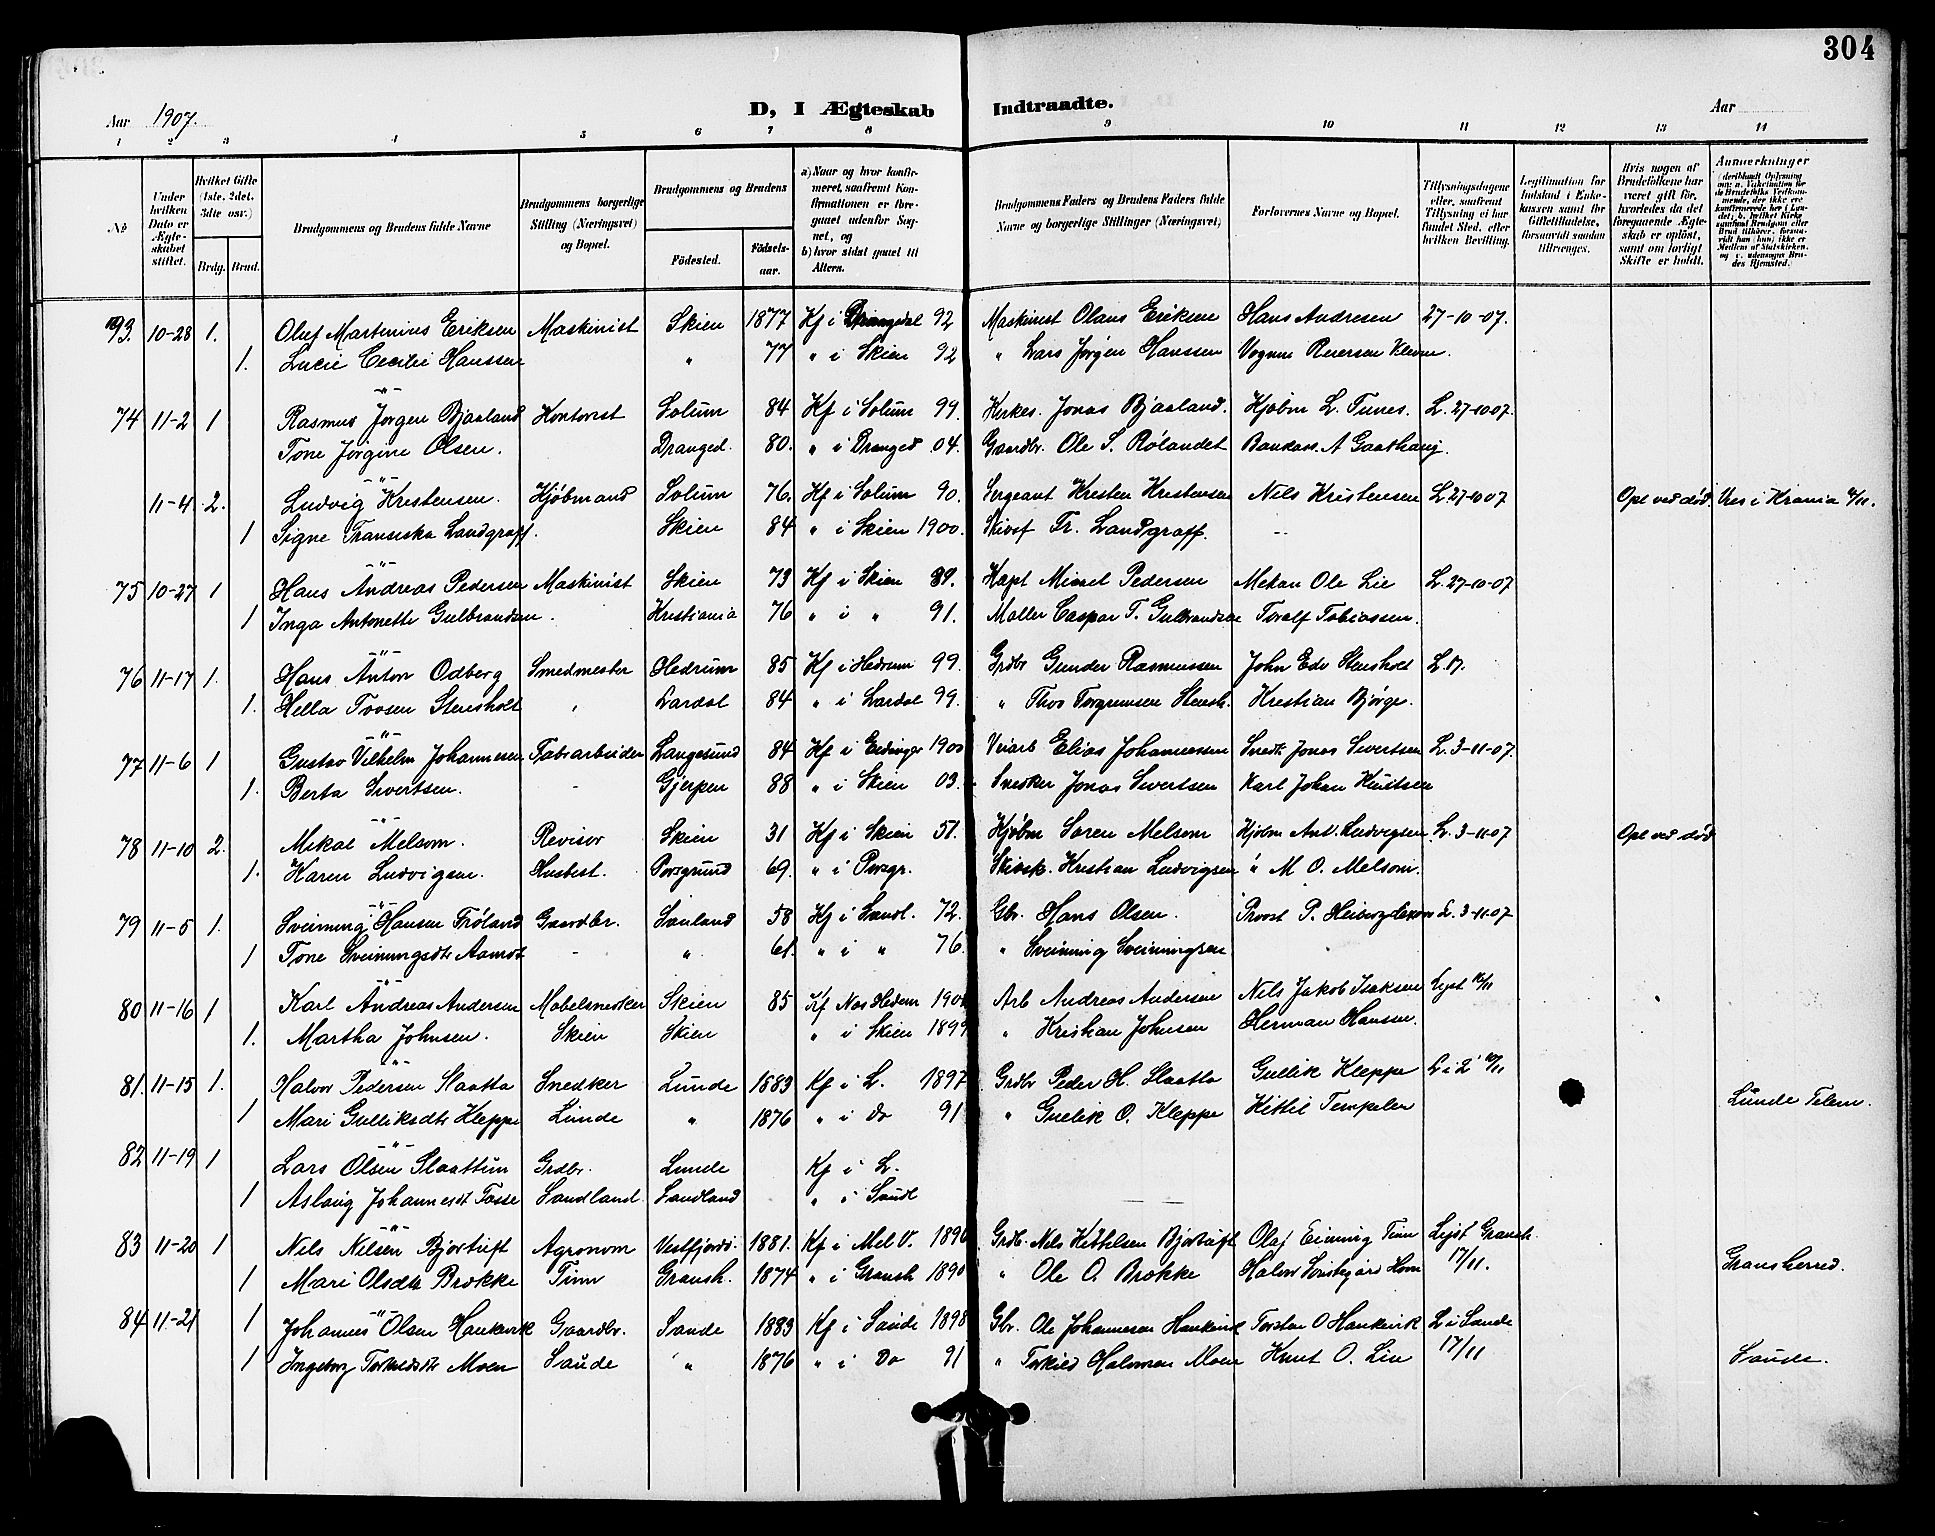 304
Aar 1907.
D, I Ægteskab Indtraadte.
Aar
1 2 3 4 5 6 7 8 9 10 11 12 13 14
No
Under hvilken Dato er Ægteskabet stiftet.
Hvilket Gifte (1ste, 2det, 3dte osv.)
Brdg. Brud.
Brudgommens og Brudens fulde Navne
Brudgommens borgerlige Stilling (Næringsvei) og Bopæl.
Brudgommens og Brudens
Födested.
Födsels-aar.
a) Naar og hvor konfirmeret, saafremt Konfirmationen er foregaaet udenfor Sognet, og
b) hvor sidst gaaet til Alters.
Brudgommens Faders og Brudens Faders fulde Navne og borgerlige Stillinger (Næringsvei)
Forlovernes Navne og Bopæl.
Tillysningsdagene eller, saafremt Tillysning ei har fundet Sted, efter hvilken Bevilling.
Legitimation for Indskud i Enkekassen samt for Giftetilladelse, forsaavidt saadan tiltrænges.
Hvis nogen af Brudefolkene har været gift før, hvorledes da det foregaaende Ægteskab er oplöst, samt om lovligt Skifte er holdt.
Anmerkninger
93. 10-28 1. Oluf Martinius Eriksen Maskinist Skien 1877 Kf i Drangedal 92 Maskinist Olaus Eriksen Hans Andresen 27-10-07.
1. Lucie Cecilie Hanssen " 77 " i Skien 92 " Lars Jørgen Hanssen Vognm Reiersen
74 11-2 1 Rasmus Jørgen Bjaaland Kontorist Solum 84 Kf i Solum 99. Kirkes. Jonas Bjaaland. Kjøbm L. Tunes. L. 27-10-07.
Tone Jørgine Olsen. Dranged. 80. " i Dranged 04. Gaardbr. Ole S. Rølandet A Gaasthaug.
11-4 2. Ludvig Kristensen. Kjøbmand Solum 76. Kf i Solum 90. Sergeant Kresten Kristensen Nils Kristensen L. 27-10 07 Opl ved död. Vies i Krania
1 Signe Fransiska Landgraff. Skien 84 " i Skien 1900. Fr. Landgraff. --
75 10-27 1 Hans Andreas Pedersen Maskinist Skien 73 Kf i Skien 89. Kapt Missel Pedersen Mekan Ole Lie L. 27-10-07
1 Inga Antonette Gulbrandsen. Kristiania 76 " i " 91. Maller Caspar T. Gulbrandsen Toralf Tobiassen.
76 11-17 1. Hans Anton Odberg Smedmester Hedrum 85 Kf i Hedrum 99. Grdbr Gunder Rasmussen John Edv Stensholt L. 17.
1. Hella Tvosen Stensholt " Lardal 84 " i Lardal 99. " Thov Torgrimsen Stensh. Kristian Bjørge.
77 11-6 1 Gustav Vilhelm Johannesen Fabrarbeider Langesund 84 Kf i Eidanger 1900 Veiarb Elias Johannessen Snedk Jonas Sivertsen L. 3-11-07.
1. Berta Sivertsen. - Gjerpen 88 " i Skien 03. Snedker Jonas Sivertsen Karl Johan Knutsen
78 11-10 2. Mikal Melsom. Revisor Skien 31 Kf i Skien 51. Kjøbm Søren Melsom Kjøbm And. Ludvigsen L. 3-11-07 Opl ved död
1. Karen Ludvigsen. Husbest. Porsgrund 69. " i Porsgr. Skibsk. Kristian Ludvigsen " M O. Melsom.
79 11-5 1. Sveinung Hansen Frøland Gaardbr. Sauland 58 Kf i Saul. 72. Gbr. Hans Olsen. Provst P. L. 3-11-07
1 Tone Sveinungsdtr Aamot - " 61. " i " 76. " Sveinung Sveinungsen
80 11-16 1 Karl Andreas Andersen Møbelsnedker Skien 85 Kf Nos Hedem Arb Andreas Andersen Nils Jakob Isaksen Lyst 10/11
1. Martha Johnsen. Skien Skien " i Skien 1899 " Kristian Johnsen Herman Hansen.
81. 11-15 1. Halvor Pedersen Slaatta Snedker Lunde 1883 Kf i L. 1897 Grdbr Peder H. Slaatta Gullik Kleppe L i L 10/11
1 Mari Gulliksdtr Kleppe Lunde " 1876 " i Do 91 " Gullik O. Kleppe Kittil Tempelen Lunde Telem.
82 11-19 1 Lars Olsen Slaattun Grdbr. Lunde Kf i L.
1 Aslaug Johannesdt Fosse Sandland Sandland " i Saudl
83 11-20 1 Nils Nilsen Bjørtuft Agronom Vestfjordd. 1881. Kf i Mel V. 1896 Grdb. Nils Kittelsen Bjørtuft Olaf Einung Tinn Lyst Gransh.
1 Mari Olsdtr Brække Tinn Gransh. 1874 " i Gransh 1890 " Ole O. Brække Halvor 17/11. Gransherred.
84 11-21 1 Johannes Olsen Haukvik Gaardbr. Saude 1883 Kf i Saude 1898 Gbr. Ole Johannesen Haukvik Torsten O Haukvik L i Saude
1 Ingeborg Torkildsdtr Moen Saude " 1876 " i Do 91 " Torkild Halvorsen Moen Knut O. Lie 17/11 Saude.